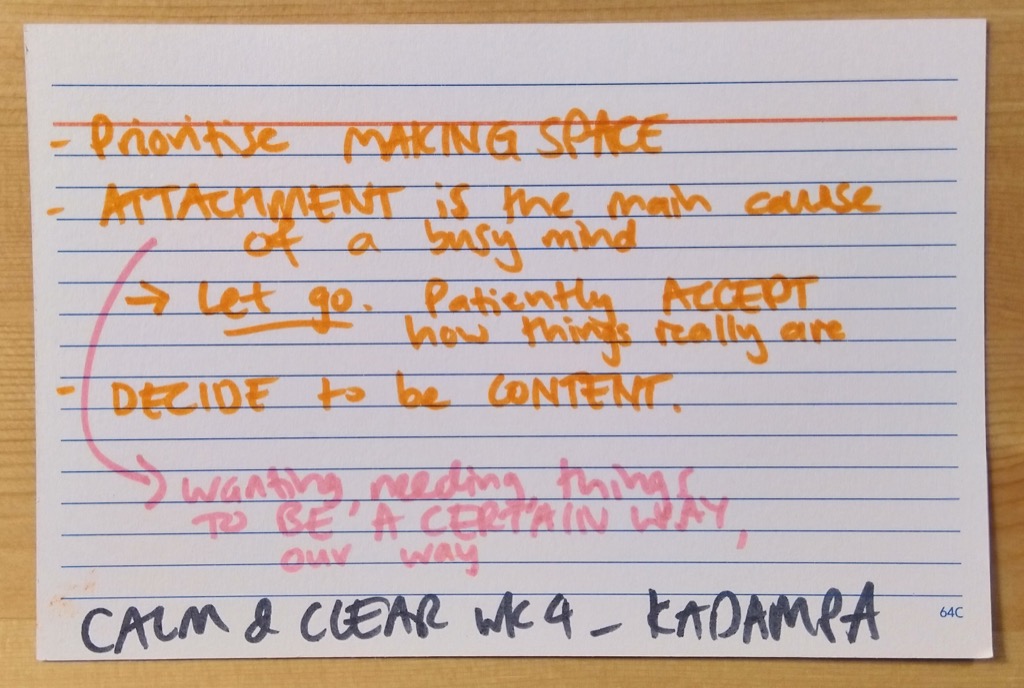 - Prioritise MAKING SPACE
- ATTACHMENT is the main cause
of a busy mind
→ Let go. Patiently ACCEPT
how things really are
- DECIDE to be CONTENT.
wanting, needing, things
TO BE 'A CERTAIN WAY,
our way
CALM & CLEAR WK 4 - KADAMPA
64C